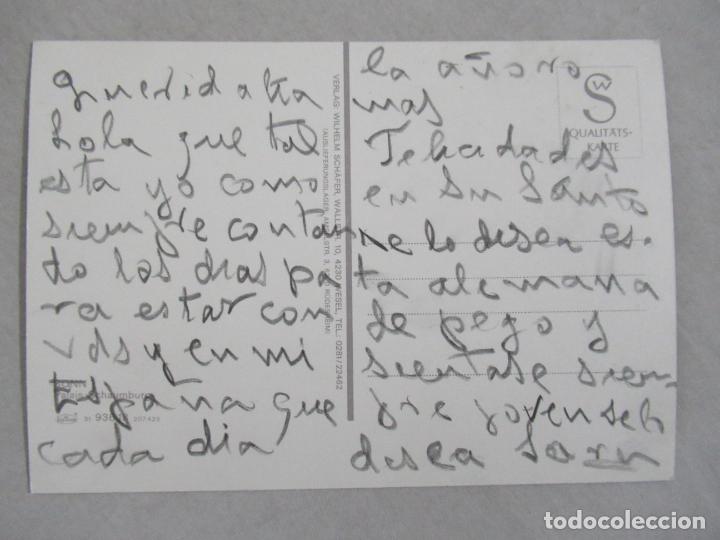 Querida tia
Lola que tal
esta yo como
siempre contan
do los dias pa
ra estar con
Vds y en mi
España que
cada dia
la añoro
mas
Felicidades
en Su Santo
se lo desea es-
ta alemana
de pego y
sientase siem-
pre joven se lo
desea
VERLAG: WILHELM SCHÄFER, WALLSTR. 10, 4230 WESEL, TEL.: 0281/22462
(AUSLIEFERUNGSLAGER
SW
QUALITÄTS-
KARTE
Palais Schaumburg
todocoleccion
todocoleccion.net